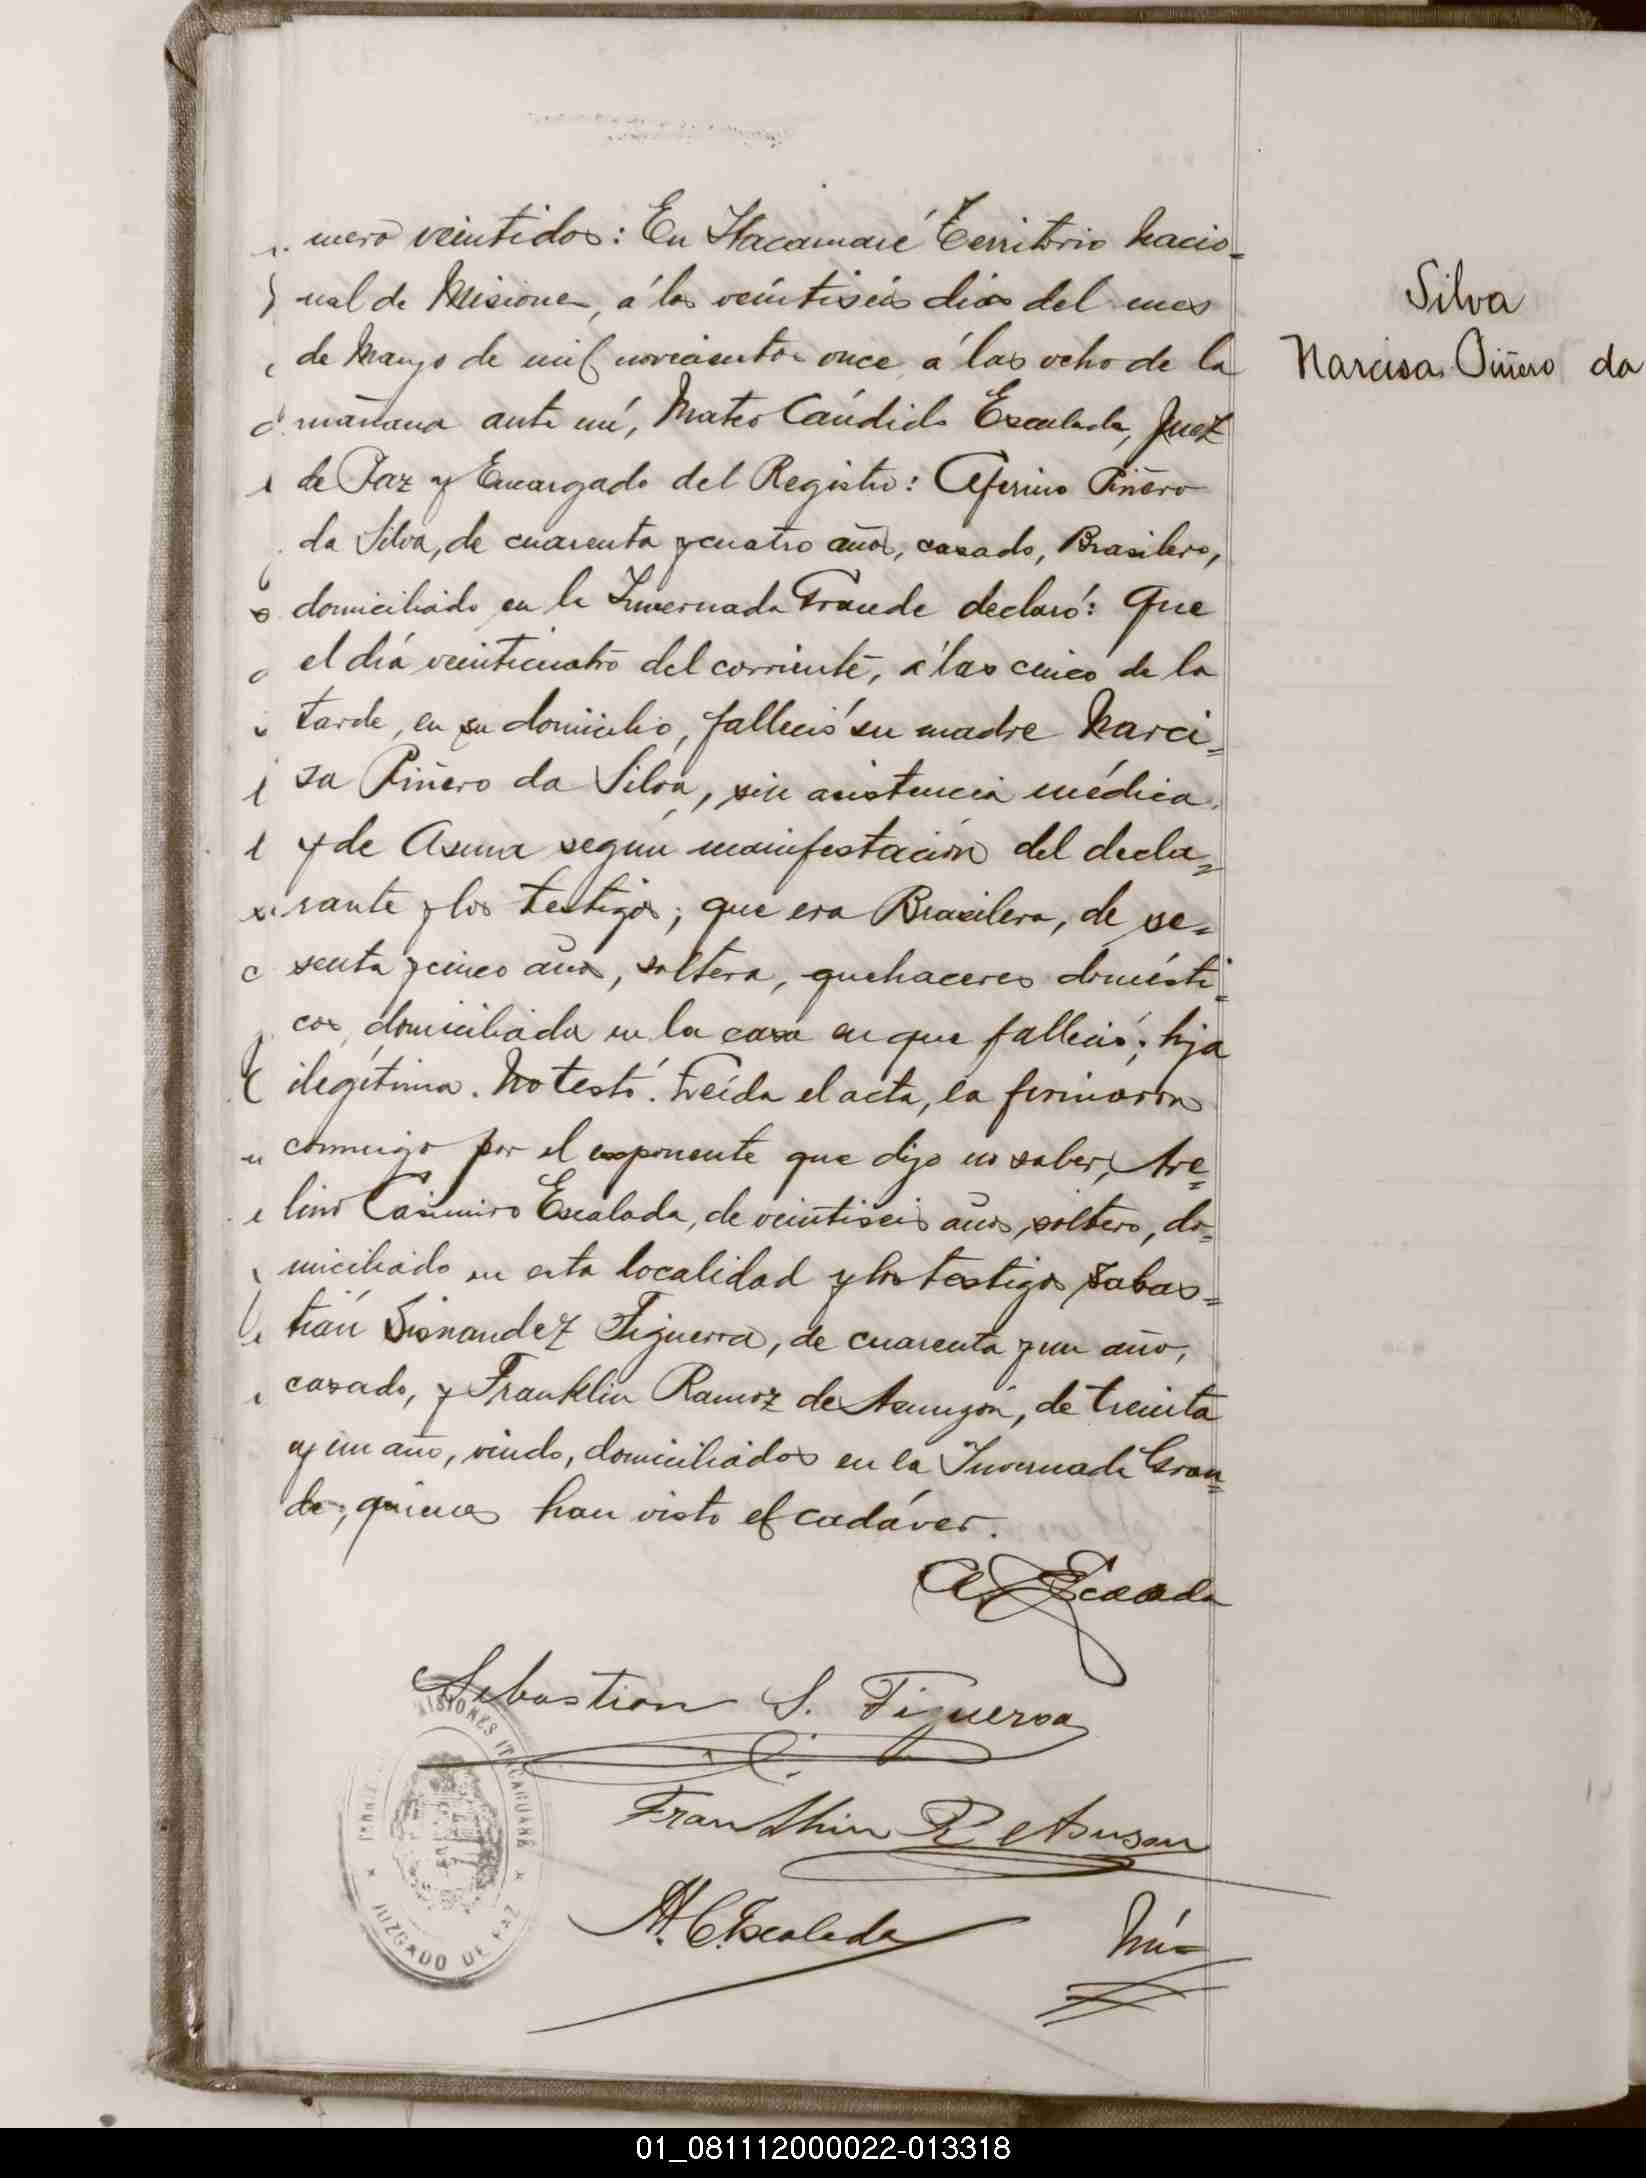 mero veintidos: En Itacaruaré Territorio Nacio=
nal de Misiones, á los veintiseis dias del mes
de Marzo de mil novecientos once á las ocho de la
mañana ante mí, Mateo Cándido Escalada, Juez
de Paz y Encargado del Registro: Ceferino Piñero
da Silva, de cuarenta y cuatro años, casado, Brasilero,
domiciliado en la Invernada Grande declaró: Que
el día veinticuatro del corriente, á las cinco de la
tarde, en su domicilio, falleció su madre Narci=
sa Piñero da Silva, sin asistencia médica
y de Asma según manifestación del decla=
rante y los testigos; que era Brasilera, de se=
senta y cinco años, soltera, quehaceres domésti=
cos, domiciliada en la casa en que falleció; hija
ilegítima. No testó. Leída el acta, la firmaron
conmigo por el exponente que dijo no saber, Ave=
lino Casimiro Escalada, de veintiseis años, soltero, do=
miciliado en esta localidad y los testigos Sabas=
tián Sisnandez Figueroa, de cuarenta y un año,
casado, y Franklin Ramoz de Asunzón, de treinta
y un año, viudo, domiciliados en la Invernada Gran=
de, quienes han visto el cadáver.
Silva
Narcisa Piñero da
Sebastian S. Figueroa
M. C. Escalada
MISIONES ITACARUARÉ
JUZGADO DE PAZ
01_081112000022-013318